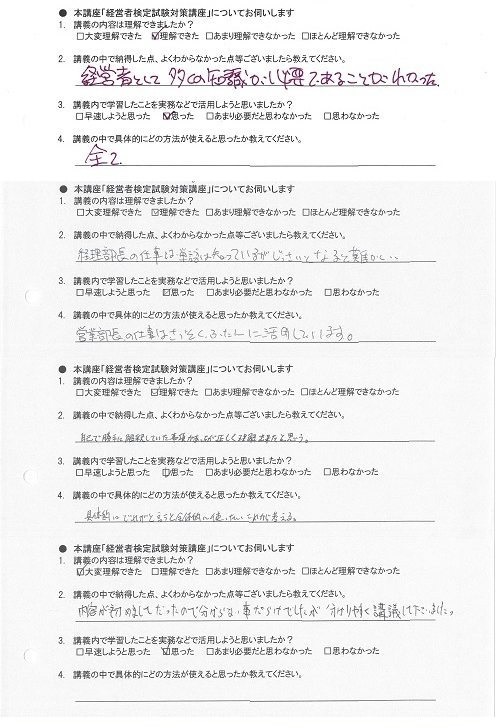 ● 本講座「経営者検定試験対策講座」についてお伺いします
1. 講義の内容は理解できましたか？
□大変理解できた ☑理解できた □あまり理解できなかった □ほとんど理解できなかった
2. 講義の中で納得した点、よくわからなかった点等ございましたら教えてください。
経営者として多くの知識が必要であることがわかった。
3. 講義内で学習したことを実務などで活用しようと思いましたか？
□早速しようと思った ☑思った □あまり必要だと思わなかった □思わなかった
4. 講義の中で具体的にどの方法が使えると思ったか教えてください。
全て
● 本講座「経営者検定試験対策講座」についてお伺いします
1. 講義の内容は理解できましたか？
□大変理解できた ☑理解できた □あまり理解できなかった □ほとんど理解できなかった
2. 講義の中で納得した点、よくわからなかった点等ございましたら教えてください。
経理部長の仕事は 知っているがじっさいとなると難かしい
3. 講義内で学習したことを実務などで活用しようと思いましたか？
□早速しようと思った ☑思った □あまり必要だと思わなかった □思わなかった
4. 講義の中で具体的にどの方法が使えると思ったか教えてください。
営業部長の仕事はさっそく、ふだんに活用しています。
● 本講座「経営者検定試験対策講座」についてお伺いします
1. 講義の内容は理解できましたか？
□大変理解できた ☑理解できた □あまり理解できなかった □ほとんど理解できなかった
2. 講義の中で納得した点、よくわからなかった点等ございましたら教えてください。
自己で勝手に解釈していた事項が 正しく理解出来たと思う。
3. 講義内で学習したことを実務などで活用しようと思いましたか？
□早速しようと思った ☑思った □あまり必要だと思わなかった □思わなかった
4. 講義の中で具体的にどの方法が使えると思ったか教えてください。
具体的にどれがと言うと全体的に使いたい これから考える。
● 本講座「経営者検定試験対策講座」についてお伺いします
1. 講義の内容は理解できましたか？
☑大変理解できた □理解できた □あまり理解できなかった □ほとんど理解できなかった
2. 講義の中で納得した点、よくわからなかった点等ございましたら教えてください。
内容が初めましてだったので分からない事だらけでしたが 分かり付く講議して下さいました。
3. 講義内で学習したことを実務などで活用しようと思いましたか？
□早速しようと思った ☑思った □あまり必要だと思わなかった □思わなかった
4. 講義の中で具体的にどの方法が使えると思ったか教えてください。